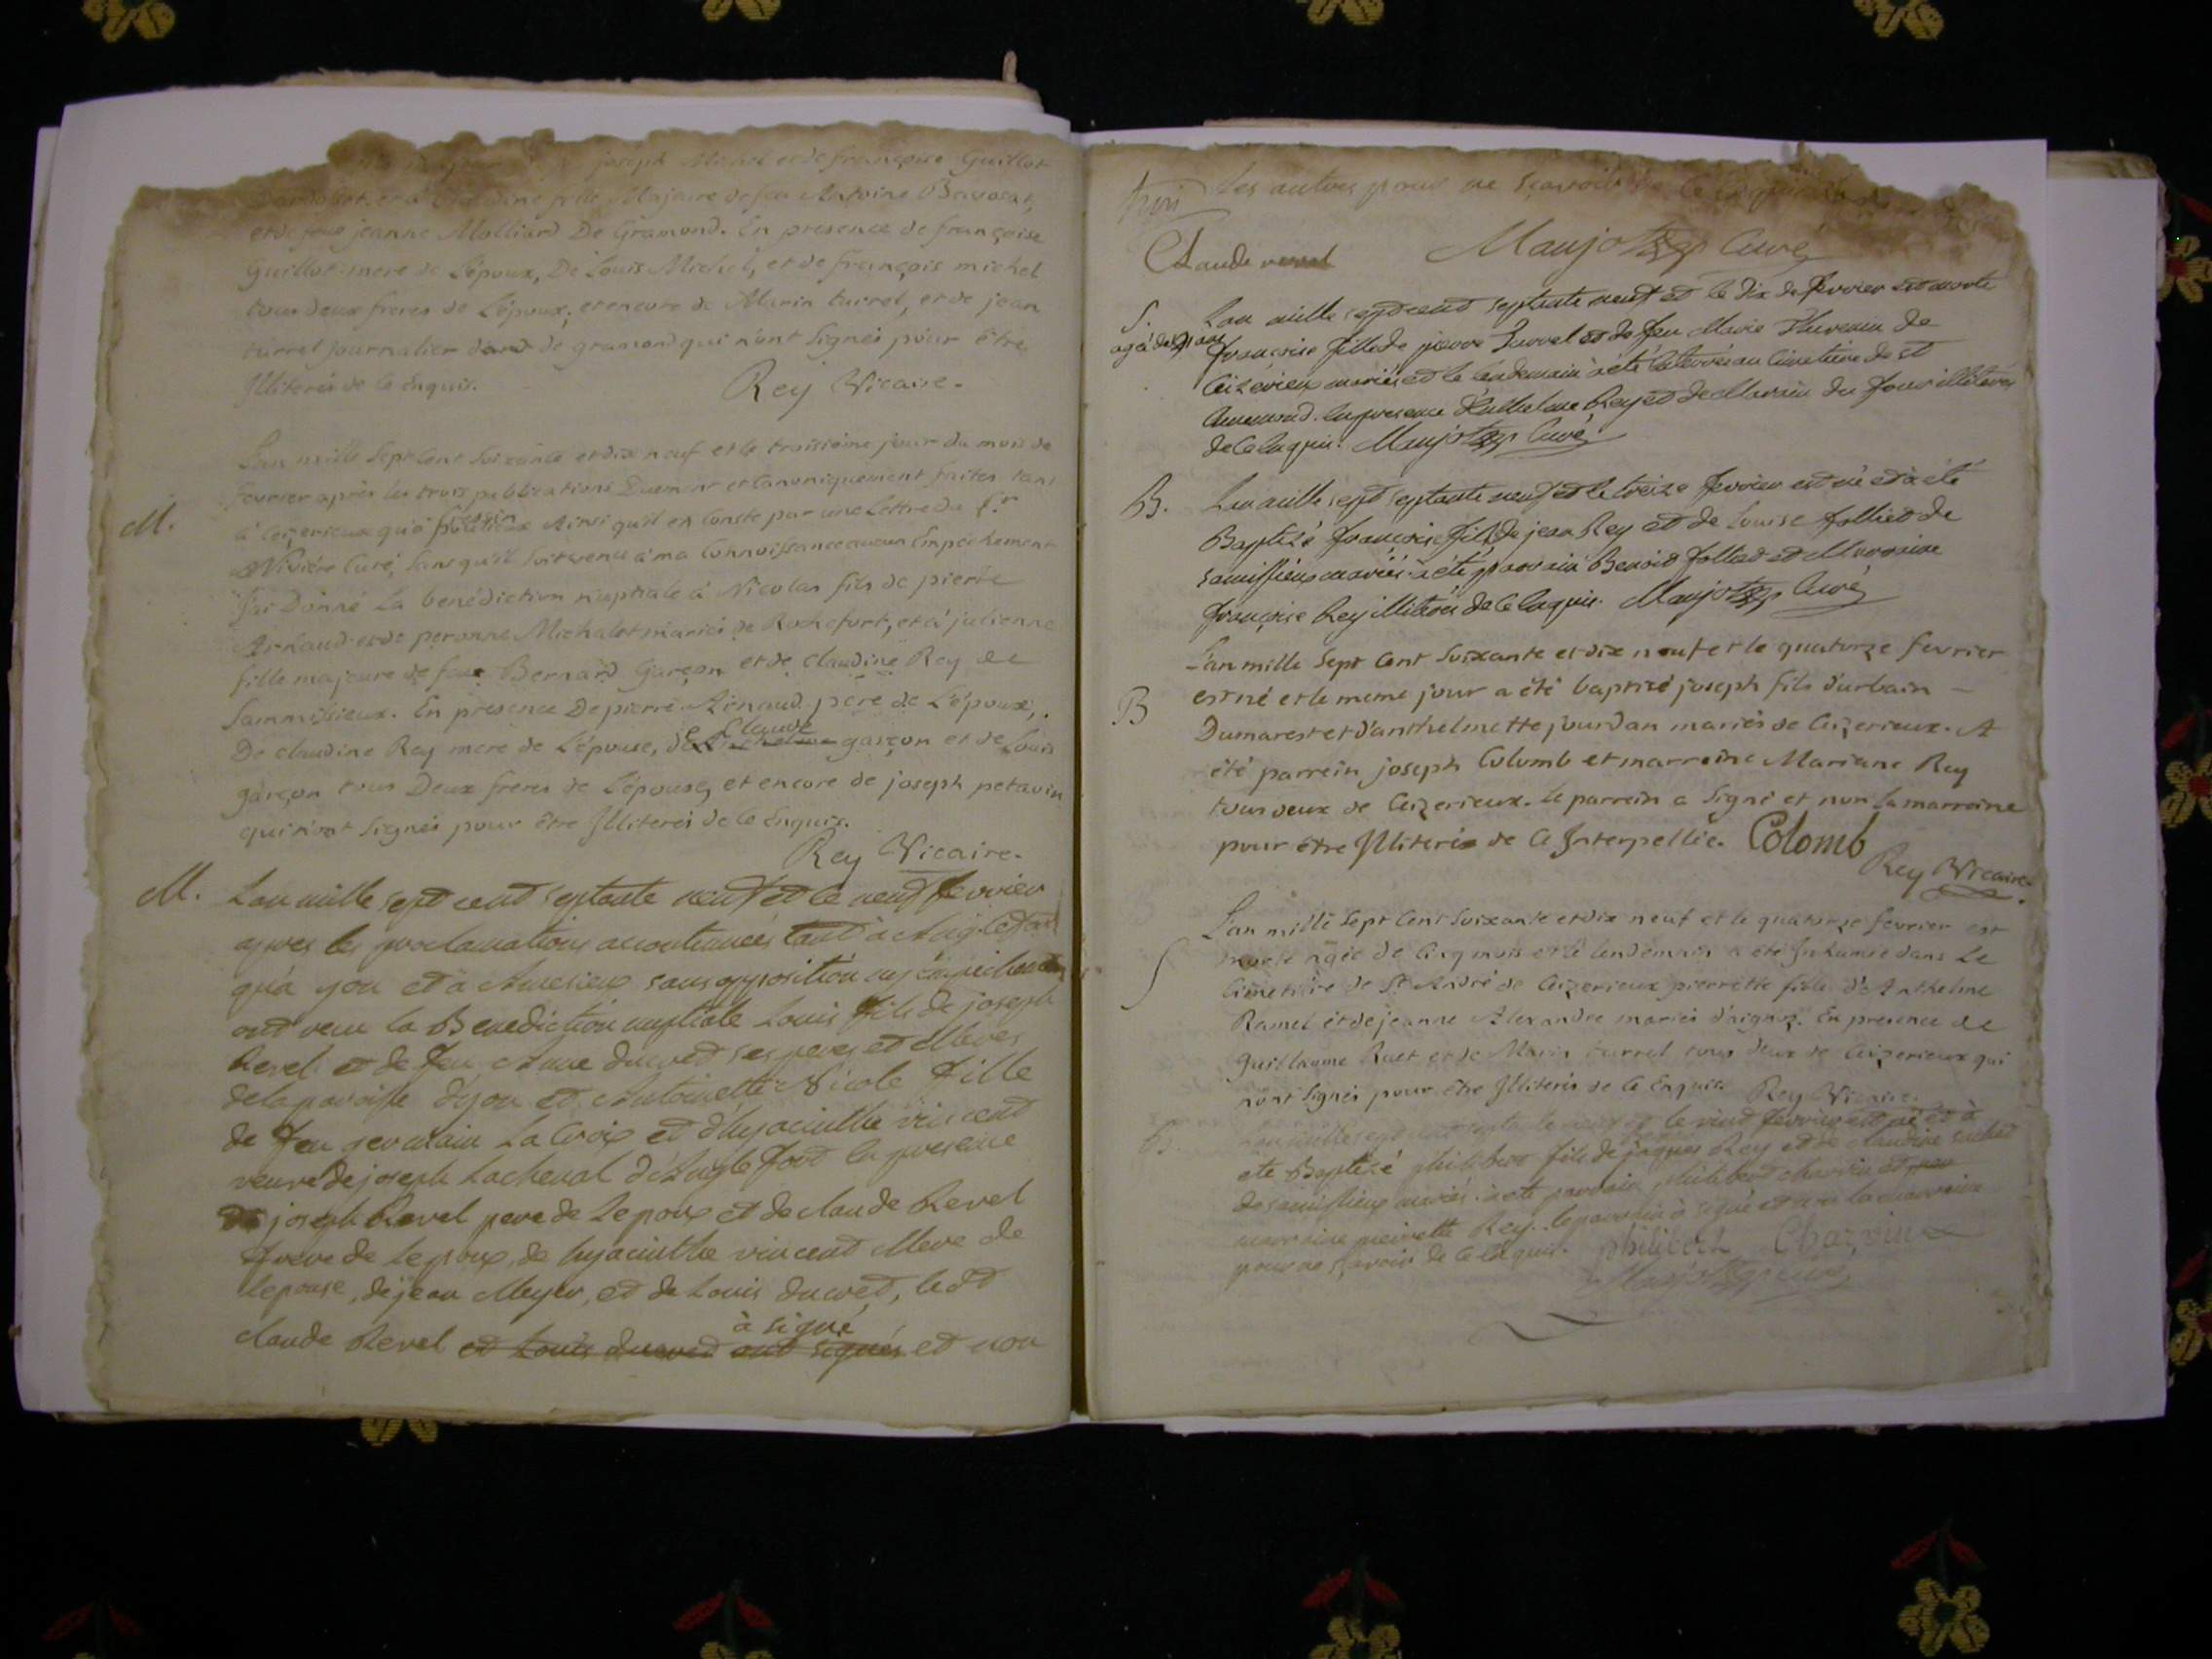 joseph Michel et de françoise Guillot
et à Claudine fille Majeure de feu Antoine Bavosat,
et de feue jeanne Molliard De Gramond. En presence de françoise
Guillot mere de L'époux, De Louis Michel, et de françois michel
tous deux freres de L'époux, et encore de Marin turrel, et de jean
turrel journalier de gramond qui n'ont Signés pour être
Jlliterés de ce Enquis. Rey Vicaire.
L'an mille Sept Cent Soixante et dix neuf et le troisième jour du mois de
Fevrier après les trois publications Duement et Canoniquement faites tant
M. à Ceizerieux qu'à Ainsi qu'il en Conste par une Lettre du Sr
Nivière Curé, sans qu'il soit venu à ma Connoissance aucun Empechement
J'ai Donné La benédiction nuptiale à Nicolas fils de pierre
Arnaud et de peronne Michalet mariés de Rochefort, et à julienne
fille majeure de feu Bernard Garçon et de Claudine Rey de
Sammissieux. En presence De pierre Arnaud pere de L'époux,
De Claudine Rey mere de L'épouse, de Claude garçon et de Louis
garçon tous Deux freres de L'épouse, et encore de joseph petavin
qui n'ont Signés pour être Jlliterés de ce Enquis.
Rey Vicaire.
M. L'an mille sept cent septante neuf et le neuf fevrier
apres les proclamations accoutumées tant à Anglefort
qu'à yon et à Amesieux sans opposition ny empechement
ont recu la Benediction nuptiale Louis fils de joseph
Revel et de feu Anne ducret ses peres et Meres
de la paroisse d'yon et Antoinette Nicole fille
de feu germain La Croix et d'hyacinthe vincent
veuve de joseph Lacheval d'Anglefort en presence
de joseph Revel pere de Lepoux et de claude Revel
frere de Lepoux, de hyacinthe vincent Mere de
lepouse, de jean Meyer, et de Louis ducret, ledt
à signé
claude Revel et Louis ducret ont signés et non
les autres pour ne sçavoir de ce enquis
Claude revel Maujot Curé
S. L'an mille sept cent septante neuf et le dix de fevrier est morte
françoise fille de pierre Turrel et de feu Marie Thevenin de
Ceizerieux mariés et le lendemain à été enterrée au Cimetiere de st
en presence d'Anthelme Rey et de Marin du four illiterés
de ce enquis. Maujot Curé
B. L'an mille sept septante neuf et le treize fevrier est né et à été
Baptisé françois fils de jean Rey et de Louise folliet de
samissieux mariés à été parrain Benoit follet et Marraine
françoise Rey illiterés de ce enquis. Maujot Curé
L'an mille Sept Cent Soixante et dix neuf et le quatorze fevrier
B est né et le meme jour a été baptisé joseph fils d'urbain
Dumarest et d'anthelmette jourdan mariés de Ceizerieux. A
été parrein joseph Colomb et marreine Mariane Rey
tous deux de Ceizerieux. le parrein a Signé et non la marreine
pour être Jlliterée de ce Interpellée. Colomb
Rey Vicaire.
L'an mille Sept Cent Soixante et dix neuf et le quatorze fevrier est
morte agée de Cinq mois et le lendemain a été Inhumée dans le
S Cimetière de St André de Ceizerieux pierrette fille d'Anthelme
Ramel et de jeanne Alexandre mariés d'aignoz. En presence de
Guillaume Ruet et de Marin turrel tous deux de Ceizerieux qui
n'ont Signés pour être Jlliterés de ce Enquis. Rey Vicaire.
B. L'an mille sept cent septante neuf et le vint fevrier est né et à
eté Baptisé philibert fils de jaques Rey et de claudine
de samissieux mariés à eté parrain philibert charvin et
marraine pierrette Rey. le parrain à signé et non la marraine
pour ne sçavoir de ce enquis. philibert Charvin
Maujot Curé